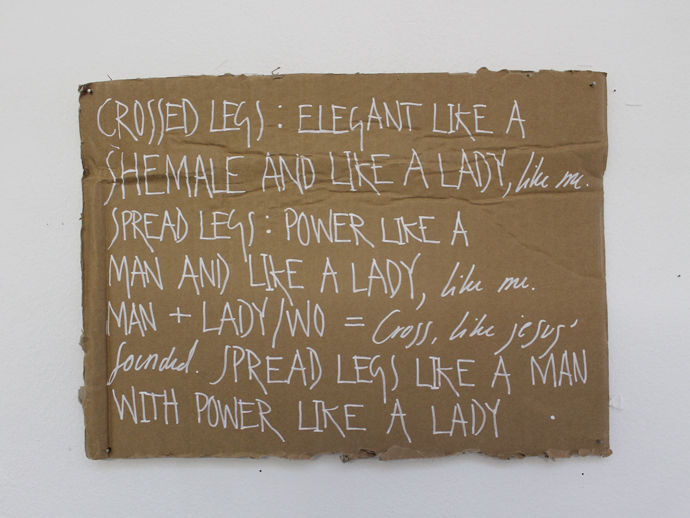 CROSSED LEGS : ELEGANT LIKE A
SHEMALE AND LIKE A LADY, like me.
SPREAD LEGS : POWER LIKE A
MAN AND LIKE A LADY, like me.
MAN + LADY/WO = Cross, like jesus'
founded. SPREAD LEGS LIKE A MAN
WITH POWER LIKE A LADY .